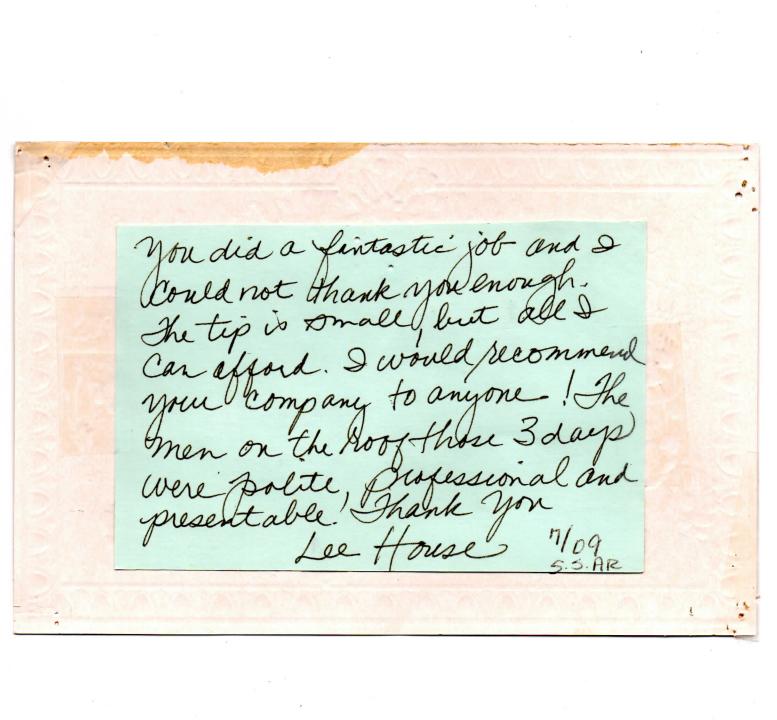 You did a fantastic job and I
could not thank you enough.
The tip is small, but all I
can afford. I would recommend
your company to anyone! The
men on the roof those 3 days
were polite, professional and
presentable! Thank You
Lee House
7/09
S.S. AR